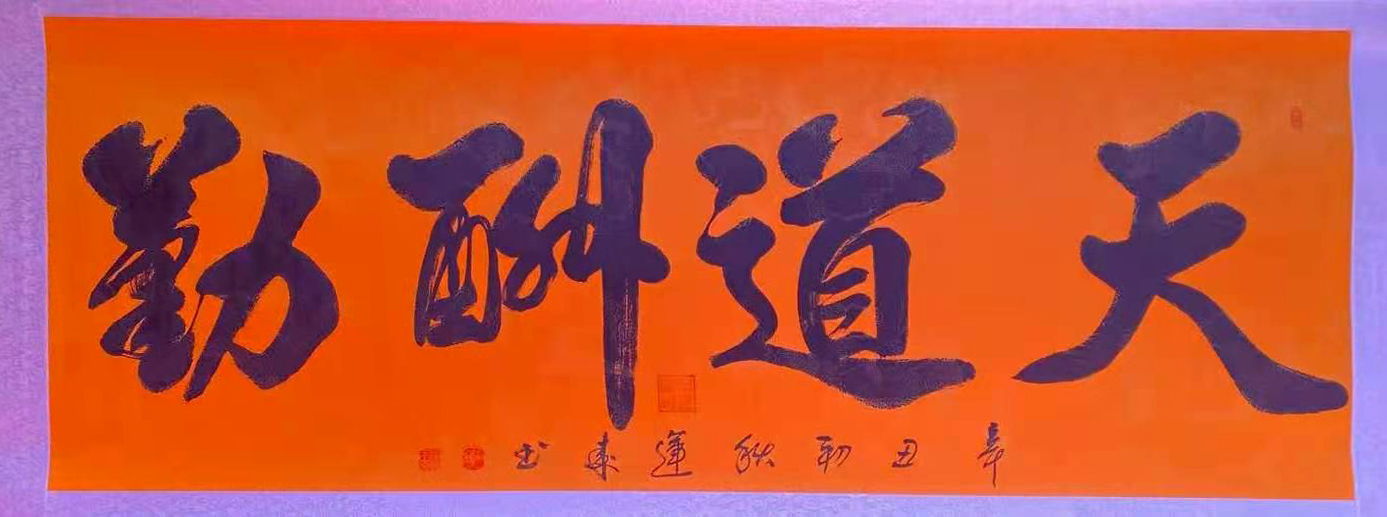 天道酬勤
辛丑初秋運来书